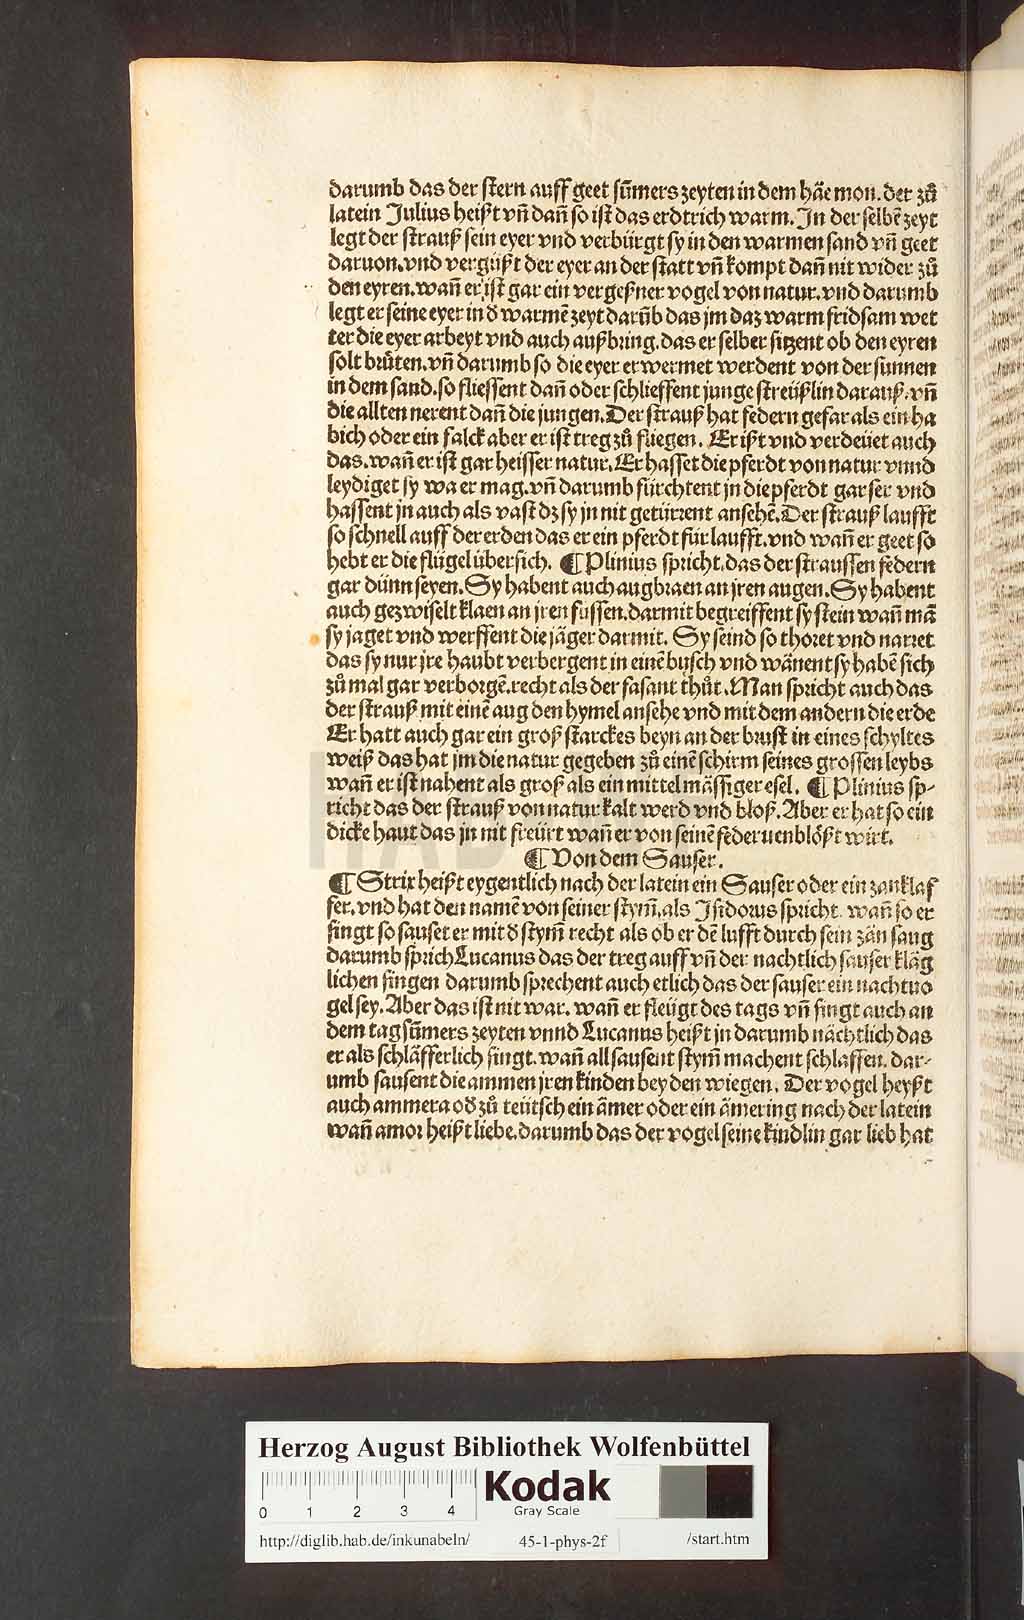 darumb das der stern auff geet sum̄ers zeyten in dem häe mon. der zů
latein Julius heißt vn̄ dan̄ so ist das erdtrich warm. In der selbē zeyt
legt der strauß sein eyer vnd verbürgt sy in den warmen sand vn̄ geet
daruon. vnd vergißt der eyer an der statt vn̄ kompt dan̄ nit wider zů
den eyren. wan̄ er ist gar ein vergeßner vogel von natur. vnd darumb
legt er seine eyer in d̕ warmē zeyt darūb das jm daz warm fridsam wet
ter die eyer arbeyt vnd auch außbring. das er selber sitzent ob den eyren
solt brůten. vn̄ darumb so die eyer erwermet werdent von der sunnen
in dem sand. so fliessent dan̄ oder schlieffent junge streüßlin darauß. vn̄
die allten nerent dan̄ die jungen. Der strauß hat federn gefar als ein ha
bich oder ein falck aber er ist treg zů fliegen. Er ißt vnd verdeüet auch
das. wan̄ er ist gar heisser natur. Er hasset die pferdt von natur vnnd
leydiget sy wa er mag. vn̄ darumb fürchtent jn die pferdt gar ser vnd
hassent jn auch als vast dz sy jn nit getürrent ansehē. Der strauß laufft
so schnell auff der erden das er ein pferdt für laufft. vnd wan̄ er geet so
hebt er die flügel übersich. ¶ Plinius spricht. das der straussen federn
gar dünn seyen. Sy habent auch augbraen an jren augen. Sy habent
auch gezwiselt klaen an jren füssen. darmit begreiffent sy stein wan̄ mā
sy jaget vnd werffent die jäger darmit. Sy seind so thoret vnd narret
das sy nur jre haubt verbergent in einē busch vnd wänent sy habē sich
zů mal gar verborgē. recht als der fasant thůt. Man spricht auch das
der strauß mit einē aug den hymel ansehe vnd mit dem andern die erde
Er hatt auch gar ein groß starckes beyn an der brust in eines schyltes
weiß das hat jm die natur gegeben zů einē schirm seines grossen leybs
wan̄ er ist nahent als groß als ein mittelmässiger esel. ¶ Plinius sp-
richt das der strauß von natur kalt werd vnd bloß. Aber er hat so ein
dicke haut das jn nit freürt wan̄ er von seinē federu enblößt wirt.
¶ Von dem Sauser.
¶ Strix heißt eygentlich nach der latein ein Sauser oder ein zanklaf
fer. vnd hat den namē von seiner stym̄, als Isidorus spricht. wan̄ so er
singt so sauset er mit d̕ stym̄ recht als ob er dē lufft durch sein zän saug
darumb sprich Lucanus das der treg auff vn̄ der nachtlich sauser kläg
lichen singen darumb sprechent auch etlich das der sauser ein nachtuo
gel sey. Aber das ist nit war. wan̄ er fleügt des tags vn̄ singt auch an
dem tag sum̄ers zeyten vnnd Lucanus heißt jn darumb nächtlich das
er als schläfferlich singt. wan̄ all sausent stym̄ machent schlaffen. dar-
umb sausent die ammen jren kinden bey den wiegen. Der vogel heyßt
auch ammera od̕ zů teütsch ein āmer oder ein ämering nach der latein
wan̄ amor heißt liebe. darumb das der vogel seine kindlin gar lieb hat
HAB
Herzog August Bibliothek Wolfenbüttel
0 1 2 3 4
Kodak
Gray Scale
http://diglib.hab.de/inkunabeln/ 45-1-phys-2f /start.htm